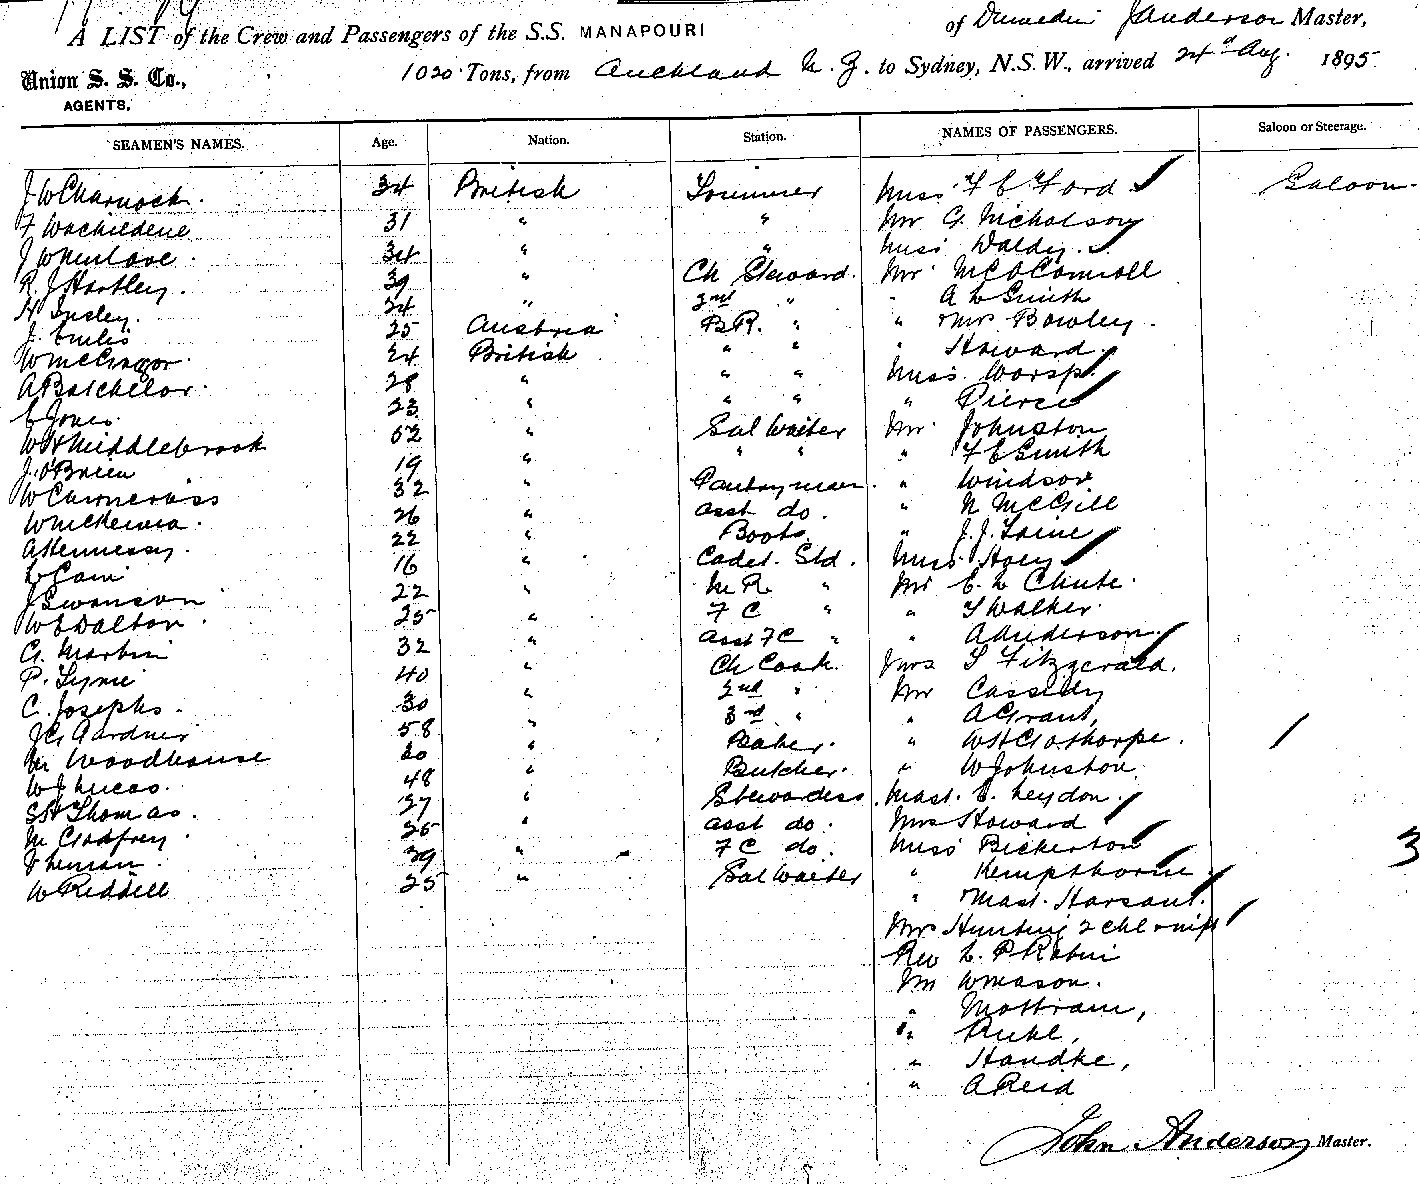 A LIST of the Crew and Passengers of the S.S. MANAPOURI of Dunedin J Anderson Master,
Union S. S. Co., AGENTS.
1020 Tons, from Auckland N. Z. to Sydney, N.S.W., arrived 24th Aug. 1895
SEAMEN'S NAMES. Age. Nation. Station. NAMES OF PASSENGERS. Saloon or Steerage.
J W Charnock. 34 British Trimmer Miss F E Ford Saloon
F 31 " " Mr G. Nicholson
J W Newlove. 34 " " Miss Waldy.
R. J Hartley. 39 " Ch Steward. Mr. McConnell
H Insley. 24 " 2nd " " A L Smith
J. 25 Austria B R. " " & Mrs Bowley.
W McGregor. 24 British " " " Howard
A Batchelor. 28 " " " Miss Worsp
E Jones. 23 " " " " Pierce
W H Middlebrook 52 " Sal Waiter Mr. Johnston
J. O'Brien 19 " " " " F E Smith
W Cairncross 32 " Pantryman. " Windsor
W 26 " asst do. " N McGill
A Hennessy. 22 " Boots " J. J.
L Cain 16 " Cadet. Std. Miss Hoey
J Swanson 22 " M R. " Mr E. L Chute.
W E Dalton. 25 " F C " " T Walker.
G. Martin 32 " asst F C " " A Anderson.
P. 40 " Ch Cook. Mrs T Fitzgerald.
C. Josephs. 30 " 2nd " Mr Cassidy
J G Gardner 58 " 3rd. " " A Grant,
M Woodhouse 20 " Baker. " W H Gosthorpe.
W J Lucas. 48 " Butcher. " W Johnston
S H Thomas. 27 " Stewardess. Mast. C. Leydon.
M Godfrey 25 " asst do. Mrs Howard
39 " F C do. Miss Bickerton 3
W Riddell 25 " Sal Waiter " Kempthorne
" & Mast. Harsant.
Mrs Hunting 2 chl & inft
Rev L. P Robin
Mr W Mason.
" Mottram,
" Ruhl,
" Handke,
" A Reid
John Anderson Master.